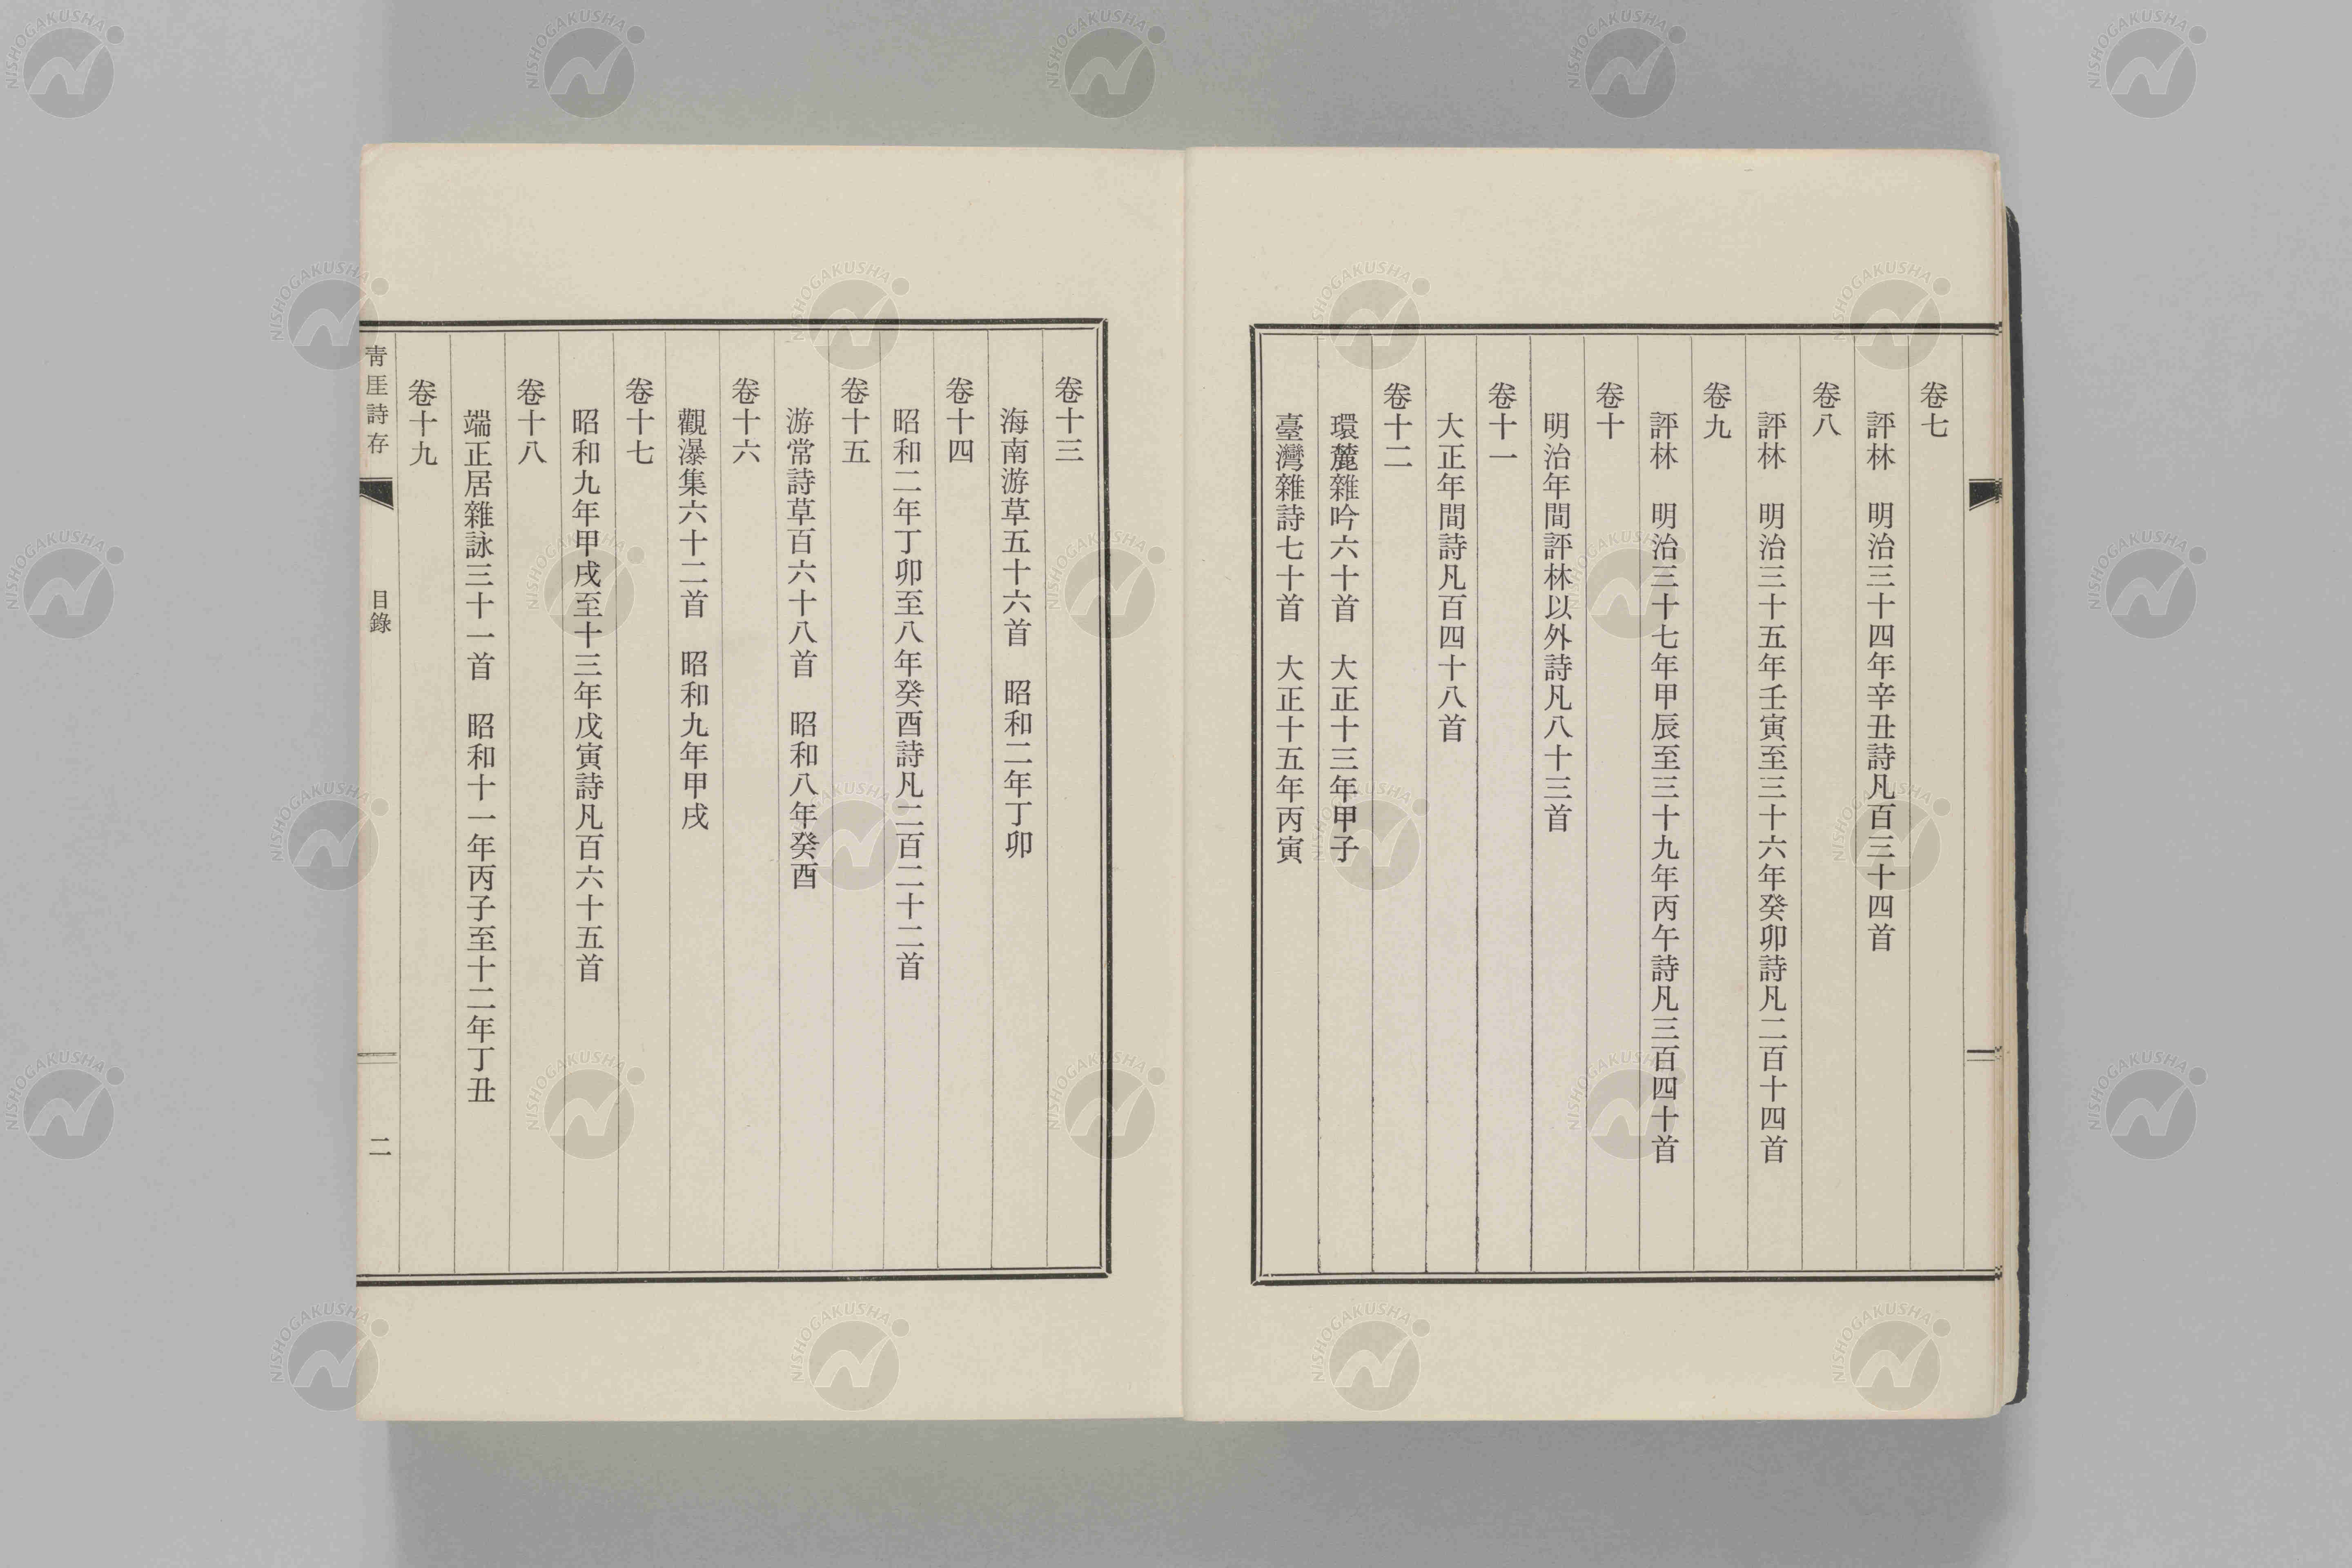 卷七
評林　明治三十四年辛丑詩凡百三十四首
卷八
評林　明治三十五年壬寅至三十六年癸卯詩凡二百十四首
卷九
評林　明治三十七年甲辰至三十九年丙午詩凡三百四十首
卷十
明治年間評林以外詩凡八十三首
卷十一
大正年間詩凡百四十八首
卷十二
環麓雜吟六十首　大正十三年甲子
臺灣雜詩七十首　大正十五年丙寅
卷十三
海南游草五十六首　昭和二年丁卯
卷十四
昭和二年丁卯至八年癸酉詩凡二百二十二首
卷十五
游常詩草百六十八首　昭和八年癸酉
卷十六
觀瀑集六十二首　昭和九年甲戌
卷十七
昭和九年甲戌至十三年戊寅詩凡百六十五首
卷十八
端正居雜詠三十一首　昭和十一年丙子至十二年丁丑
卷十九
靑厓詩存　目錄　二
NISHOGAKUSHA